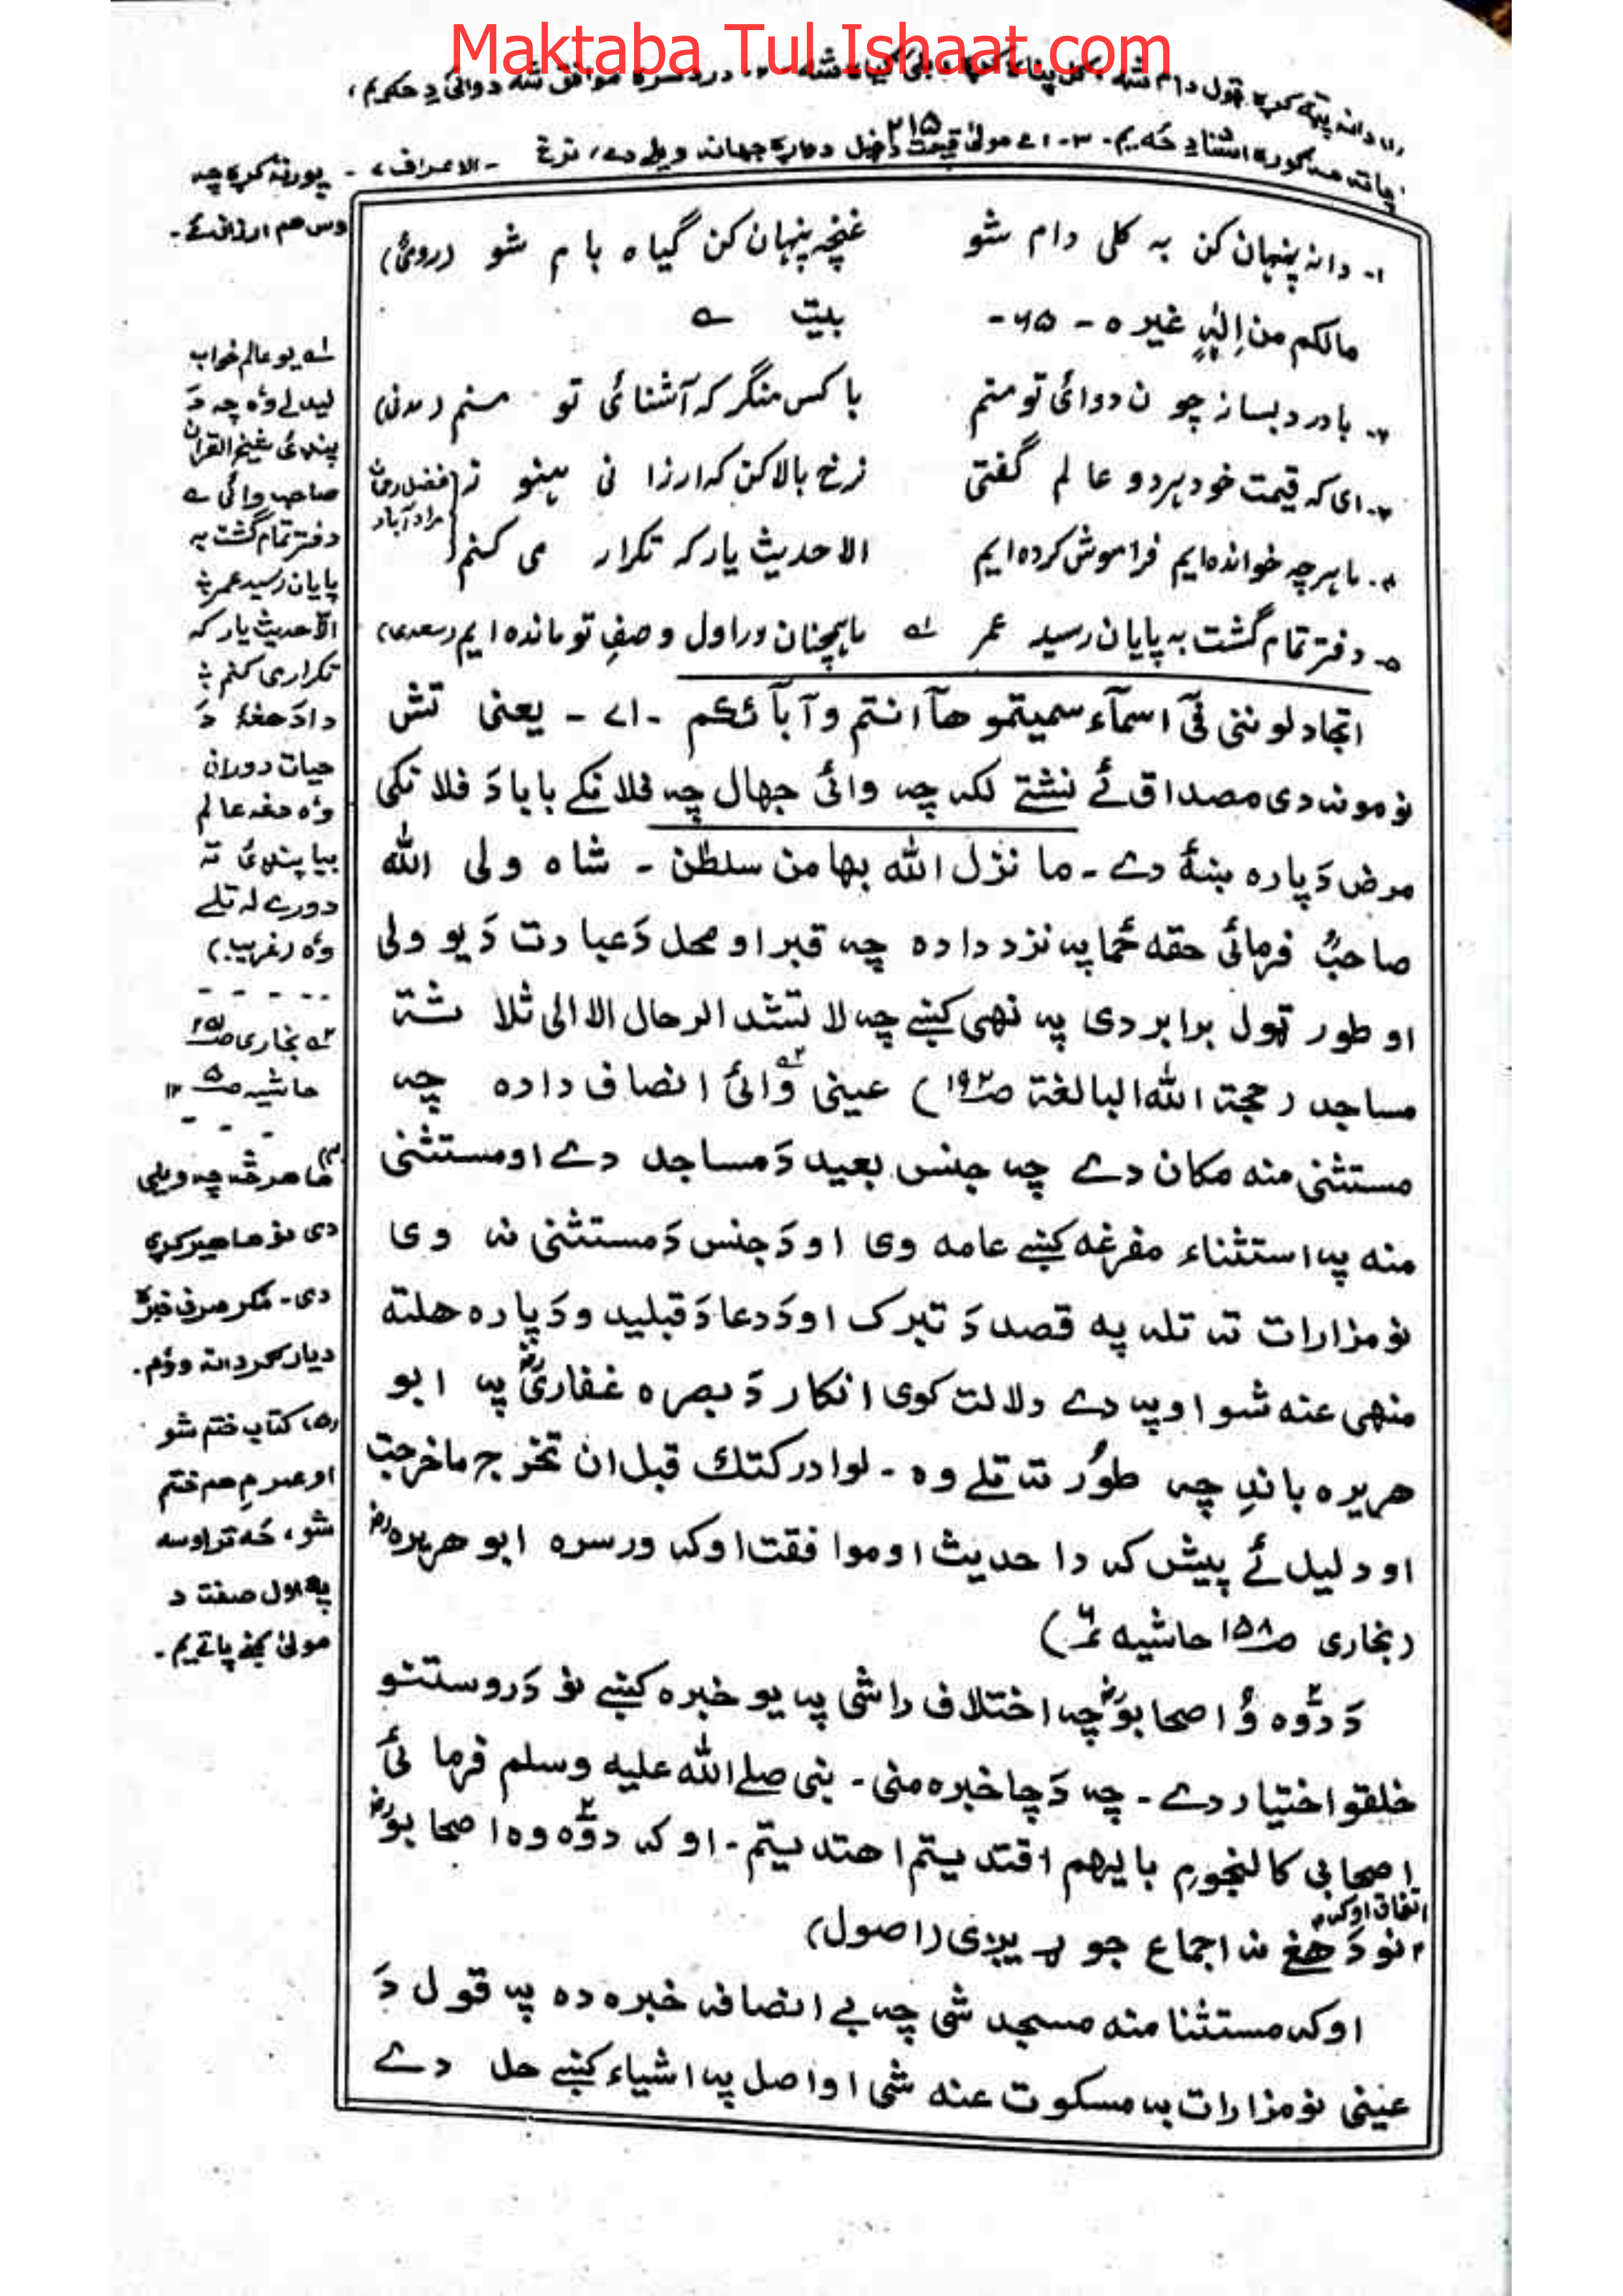 Maktaba Tul Ishaat.com
۲۱۵
الاعراف ۷ - پورته کړه چه
اوس هم ارزانئے -
۱- دانه پنهان کن به کلی دام شو غنچه پنهان کن گیاه بام شو (رومیؒ)
مالکم من اِلٰہٍ غیره - ۶۵ - بیت
۲- بادرد بساز چو ن دوائی تو منم باکس منگر که آشنائی تو منم (مدنی)
۳- ای که قیمت خود هر دو عالم گفتی نرخ بالا کن که ارزا نی هنو ز
۴- ما هرچه خوانده ایم فراموش کرده ایم الا حدیث یار که تکرار می کنم
فضل رحمٰن
مراد آباد
۵- دفتر تمام گشت به پایان رسید عمر ما همچنان در اول وصفِ تو مانده ایم (سعدی)
اتجادلوننی فی اسمآء سمیتموهآ انتم و آبآئکم - ۷۱ - یعنی تش
نومونه دی مصداق ئے نشتے لکه چه وائی جهال چه فلانکے بابا دَ فلانکی
مرض دَپاره ښهٔ دے - ما نزل الله بها من سلطٰن - شاه ولی الله
صاحبؒ فرمائی حقه څما په نزد داده چه قبر او محل دَ عبادت دَ یو ولی
او طور ټول برابر دی په نهی کښے چه لا تشد الرحال الا الی ثلاثة
مساجد (حجة الله البالغة صـ۱۹۲) عینی وائی انصاف داده چه
مستثنی منه مکان دے چه جنس بعید دَ مساجد دے او مستثنی
منه په استثناء مفرغه کښے عامه وی او دَ جنس دَ مستثنی نه وی
نو مزارات ته تله په قصد دَ تبرک او دَ دعا دَ قبلیدو دَپاره هلته
منهی عنه شو او په دے دلالت کوی انکار دَ بصره غفاریؓ په ابو
هریره باندِ چه طور ته تلے وه - لو ادرکتك قبل ان تخرج ما خرجت
او دلیل ئے پیش که دا حدیث او موافقت اوکه ورسره ابو هریرهؓ
(بخاری صـ۱۵۸ حاشیه ۶)
دَ دوه وُ اصحابوؓ چه اختلاف راشی په یو خبره کښے نو دَ روستنو
خلقو اختیار دے - چه دَ چا خبره منی - نبی صلے الله علیه وسلم فرمائی
اصحابی کالنجوم بایهم اقتدیتم اهتدیتم - او که دوه وه اصحابوؓ
اتفاق اوکه
نو دَ هغے نه اجماع جوړیږی (اصول)
او که مستثنا منه مسجد شی چه بے انصافه خبره ده په قول دَ
عینی نو مزارات به مسکوت عنه شی او اصل په اشیاء کښے حل دے
یو عالم خواب
لیدلے وٗه چه دَ
پنډئ شیخ القرآن
صاحب وائی
دفتر تمام گشت به
پایان رسید عمر
الا حدیث یار که
تکرار می کنم
دا دَ هغهٔ دَ
حیات دوران
وٗه هغه عالم
بیا پنډئ ته
دورے له تلے
وٗه (غریب)
بخاری صـ
حاشیه صـ
ما هر څه چه ویلی
دی نو ما هیر کړی
دی - مگر صرف خبرے
دیار گردانه ووم -
(۵) کتاب ختم شو
او عمر مِ هم ختم
شو، څه تر اوسه
په اول صفت د
مولیٰ کښے پاتے یم -